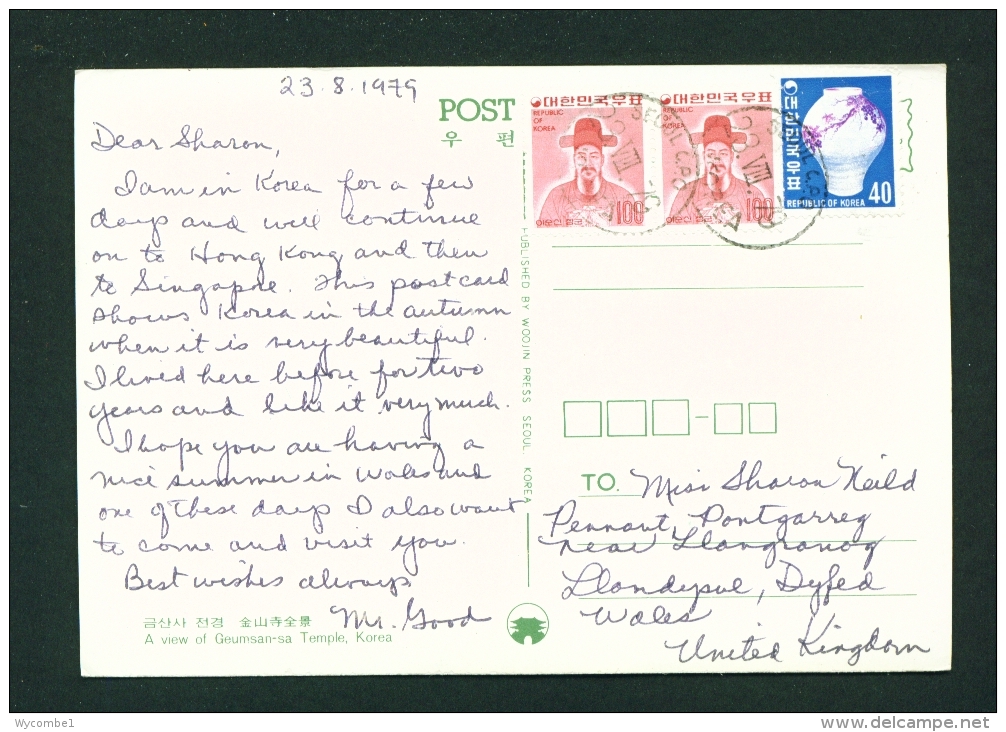 23.8.1979
Dear Sharon,
I am in Korea for a few
days and will continue
on to Hong Kong and then
to Singapore. This postcard
shows Korea in the autumn
when it is very beautiful.
I lived here before for two
years and like it very much.
I hope you are having a
nice summer in Wales and
one of these days I also want
to come and visit you.
Best wishes always,
Mr. Good
금산사 전경 金山寺全景
A view of Geumsan-sa Temple, Korea
POST
우 편
PUBLISHED BY WOOJIN PRESS SEOUL, KOREA
대한민국우표
REPUBLIC OF KOREA
100
대한민국우표
REPUBLIC OF KOREA
100
대한민국우표
40
REPUBLIC OF KOREA
SEOUL C.P.O
SEOUL C.P.O
TO. Miss Sharon Neild
Pennant, Pontgarreg
near Llangranog
Llandysul, Dyfed
Wales
United Kingdom
Wycombe1
www.delcampe.net